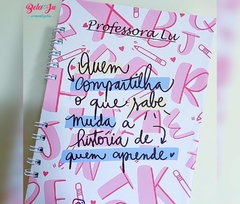 Bela Ju
Professora Lu
Quem
compartilha
o que sabe
muda a
história de
quem aprende